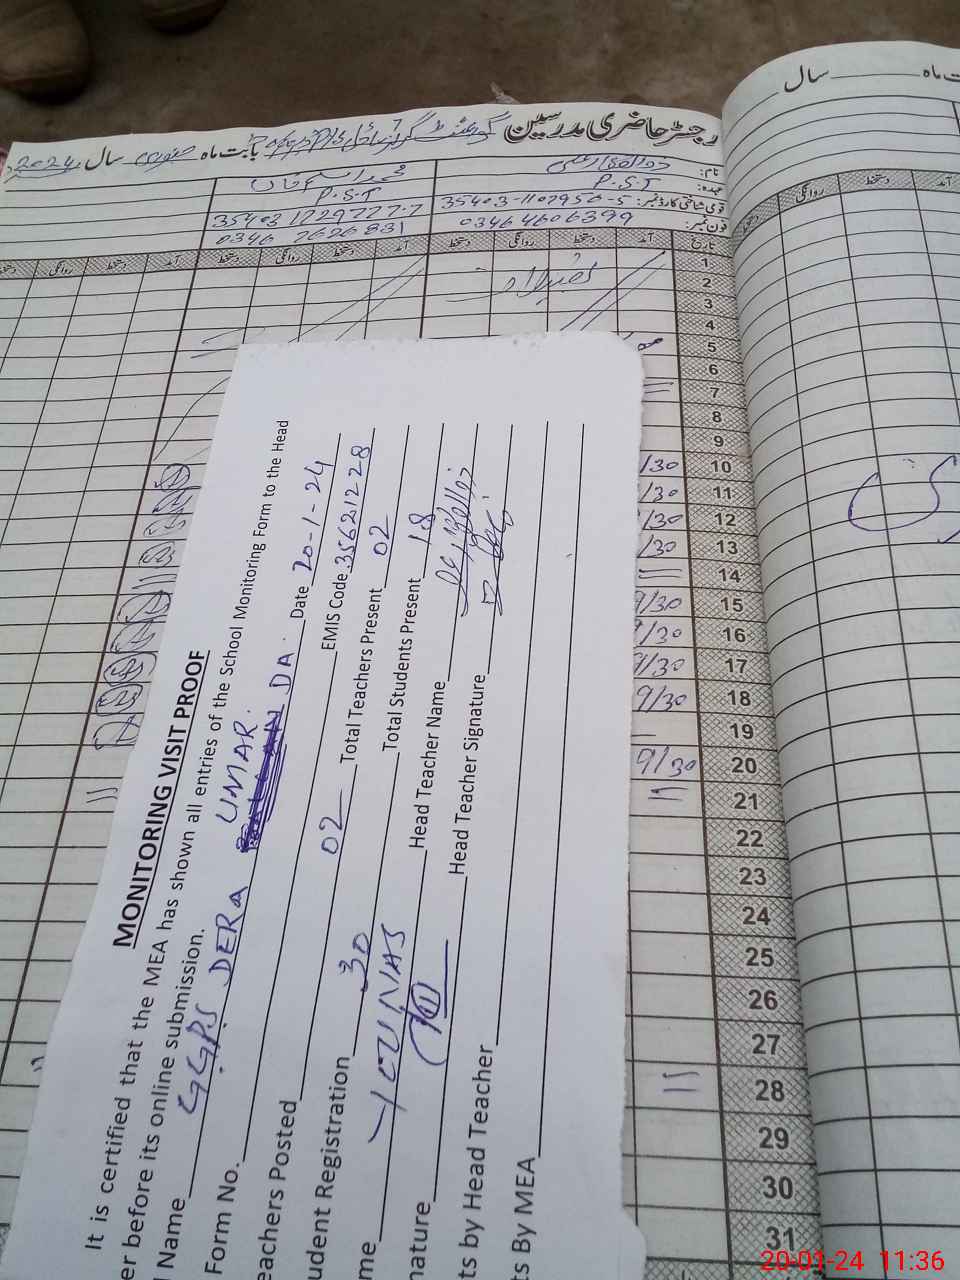 رجسٹر حاضری مدرسین گورنمنٹ بابت ماہ جنوری سال 2024
نام: ذوالفقار علی
عہدہ: P.S.T P.S.T
قومی شناختی کارڈ نمبر: 35403-1107950-5 35403 1729727-7
فون نمبر: 0346 4606399 0346 7626831
تاریخ آمد دستخط روانگی دستخط آمد دستخط روانگی دستخط آمد دستخط روانگی دستخط
1
2
3
4
5
6
7
8
9
10 /30
11 /30
12 /30
13 /30
14
15 9/30
16 9/30
17 9/30
18 9/30
19
20 9/30
21
22
23
24
25
26
27
28
29
30
31
ت ماہ سال
آمد دستخط روانگی دستخط
MONITORING VISIT PROOF
It is certified that the MEA has shown all entries of the School Monitoring Form to the Head
er before its online submission.
Name GGPS DERA UMAR DA. Date 20-1-24
Form No. EMIS Code 35621228
eachers Posted 02 Total Teachers Present 02
udent Registration 30 Total Students Present 18
me YOUNAS Head Teacher Name
nature Head Teacher Signature
ts by Head Teacher
ts By MEA
20-01-24 11:36